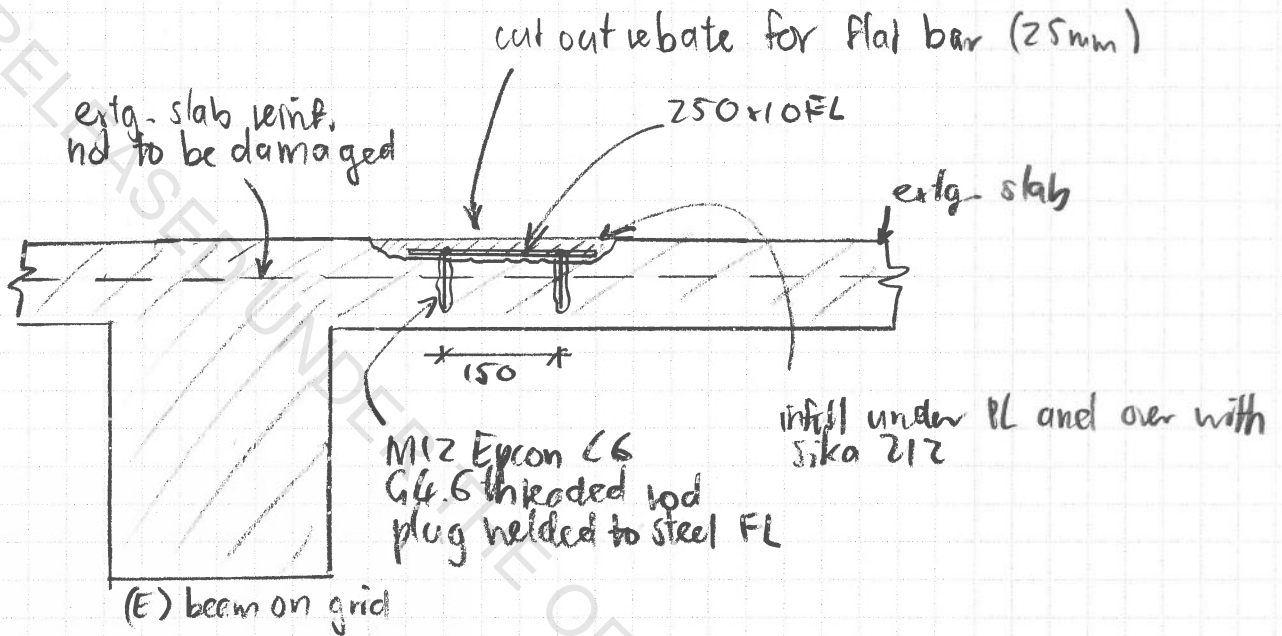 cut out rebate for flat bar (25mm)
extg. slab reinf.
not to be damaged
250x10FL
extg. slab
150
infill under PL and over with
Sika 212
M12 Epcon C6
G4.6 threaded rod
plug welded to steel FL
(E) beam on grid
RELEASED UNDER THE OF